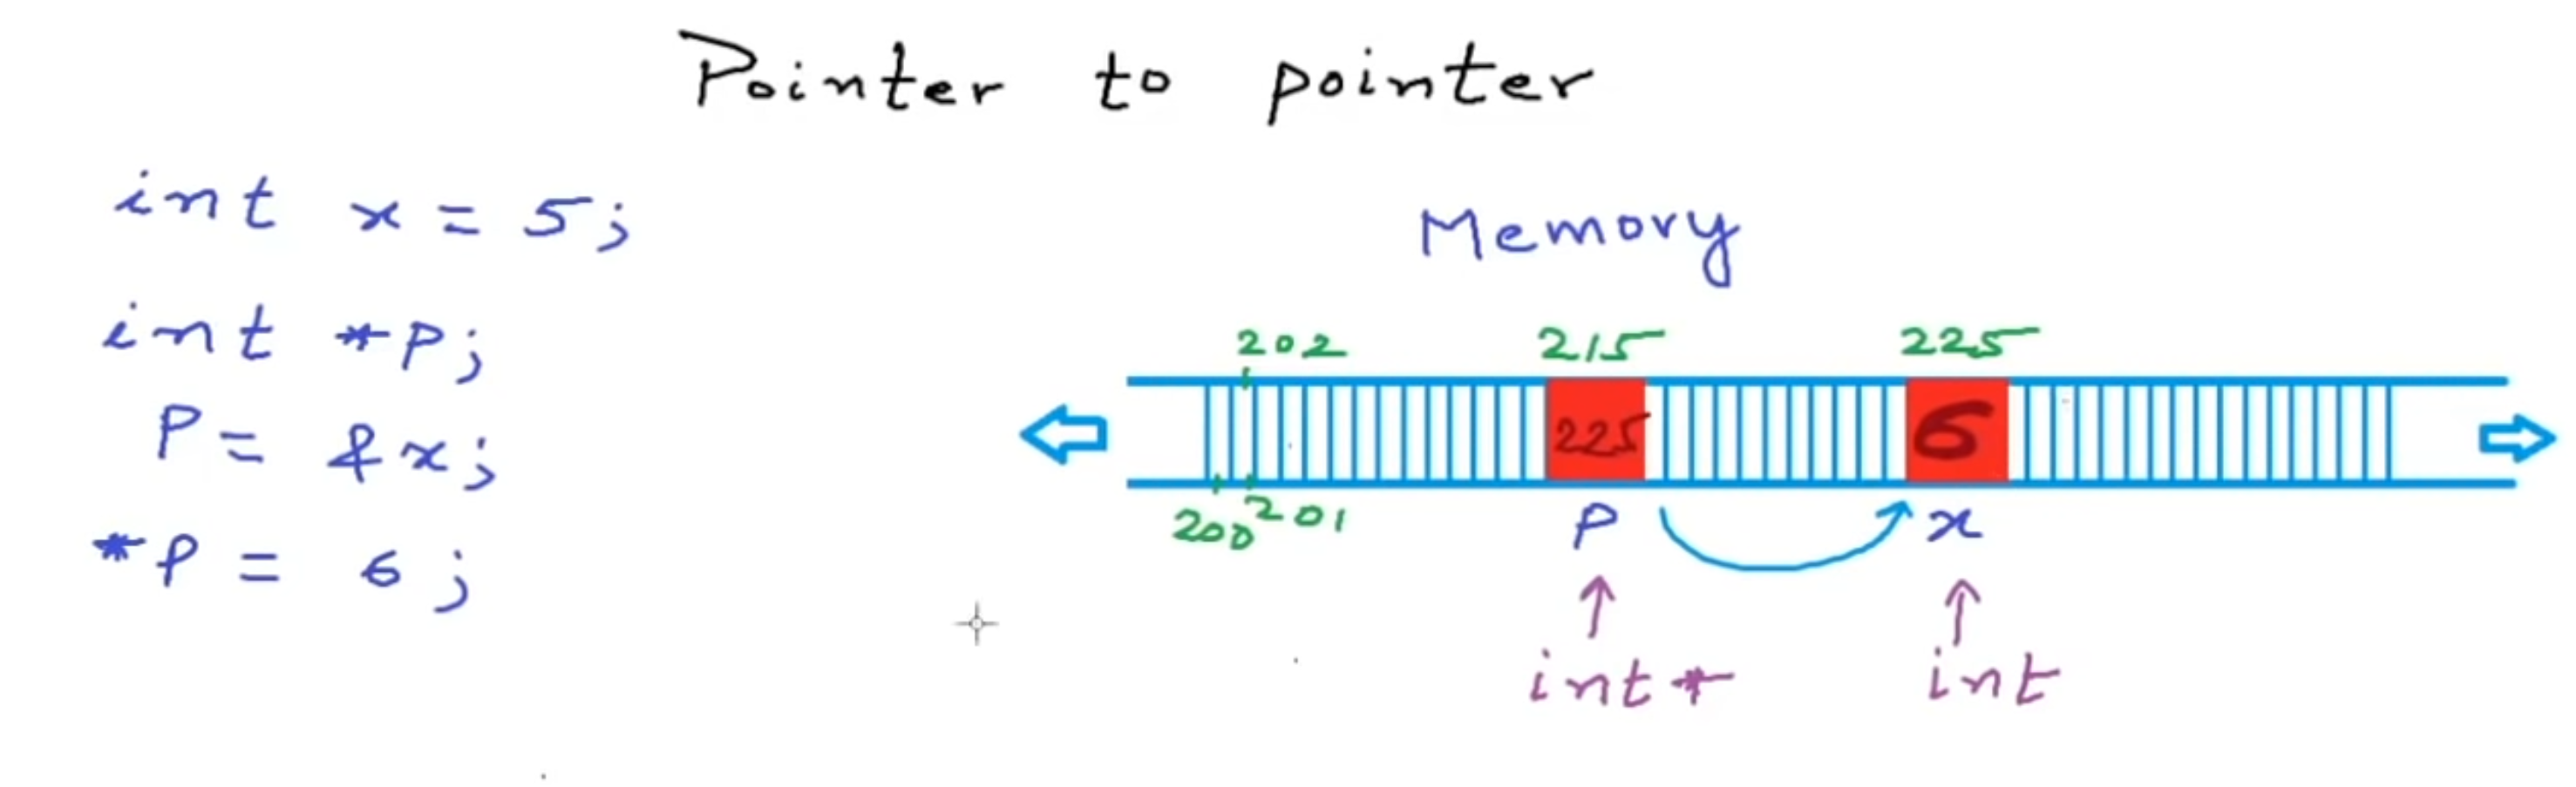 Pointer to pointer
int x = 5;
int *p;
P = &x;
*P = 6;
Memory
202 215 225
225 6
200 201
P x
int* int